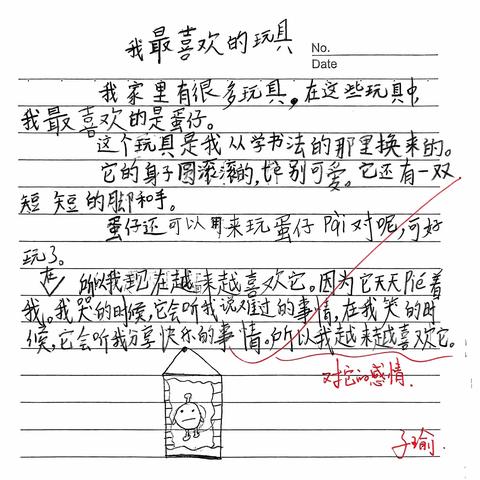 我最喜欢的玩具
No.
Date
我家里有很多玩具，在这些玩具中，
我最喜欢的是蛋仔。
这个玩具是我从学书法的那里换来的。
它的身子圆滚滚的，特别可爱。它还有一双
短短的脚和手。
蛋仔还可以用来玩蛋仔Pɑi对呢，可好
玩了。
在
所以我现在越来越喜欢它。因为它天天Péi着
我。我哭的时候，它会听我说难过的事情，在我笑的时
候，它会听我分享快乐的事情。所以我越来越喜欢它。
对它的感情.
子瑜.